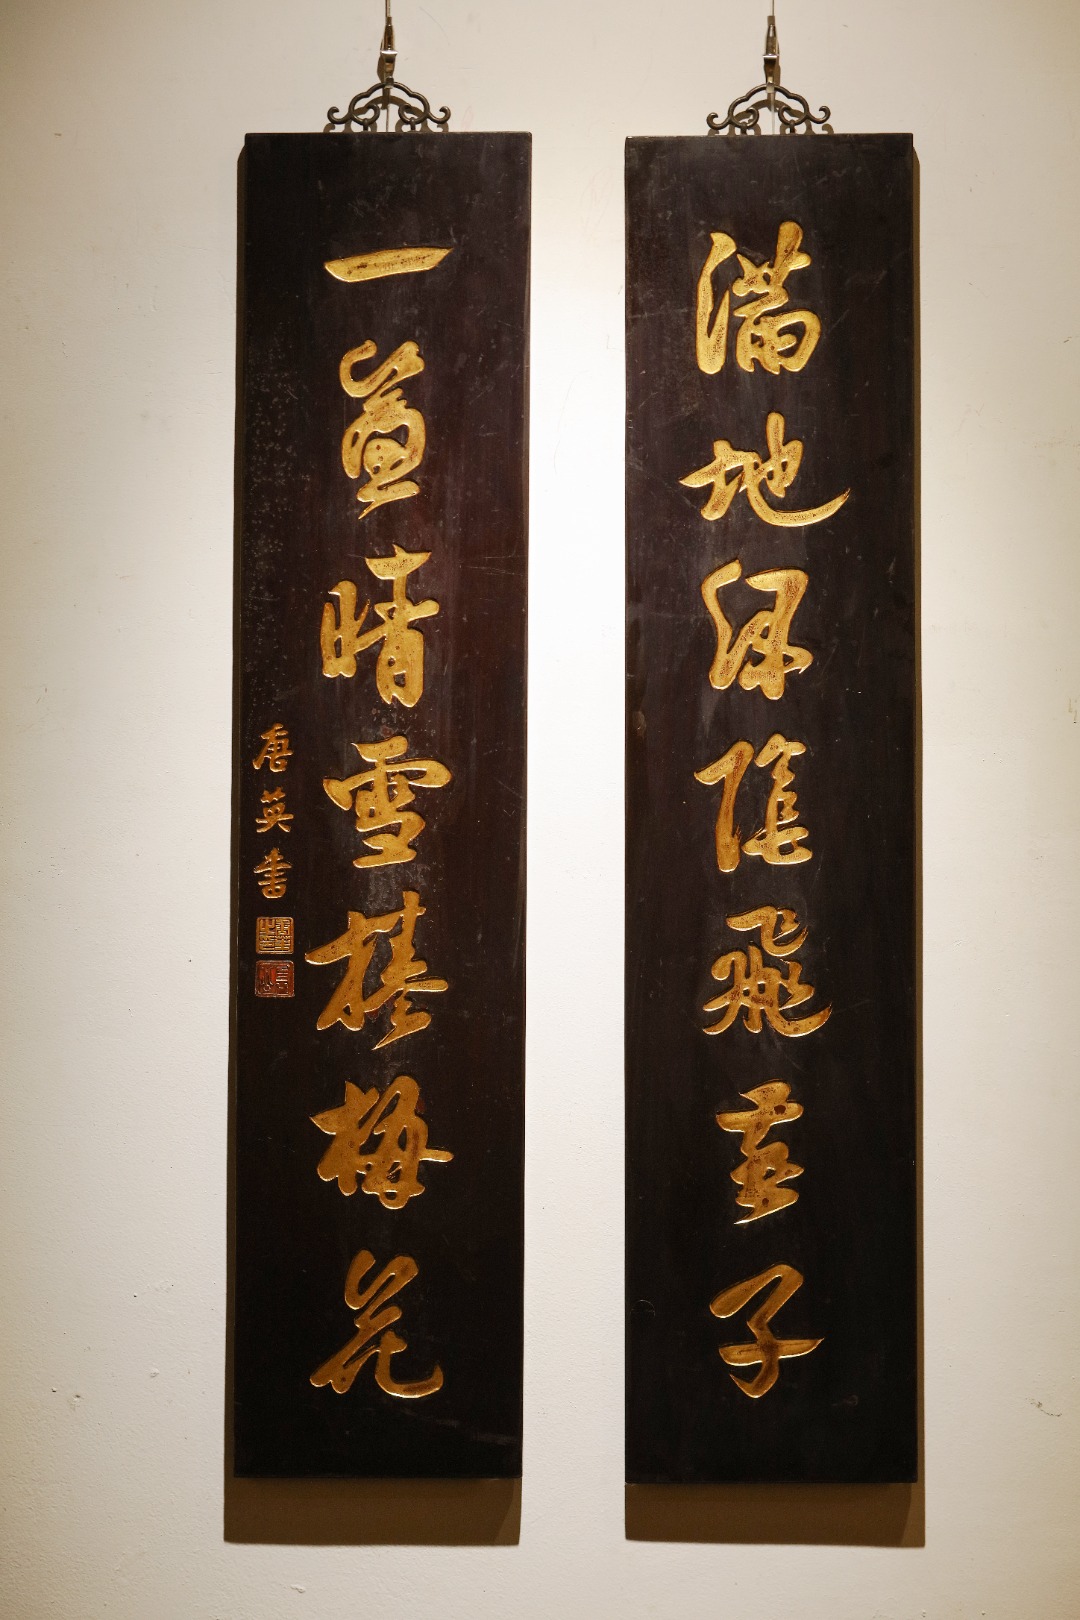 滿地綠陰飛燕子
一簾晴雪捲梅花
唐英書